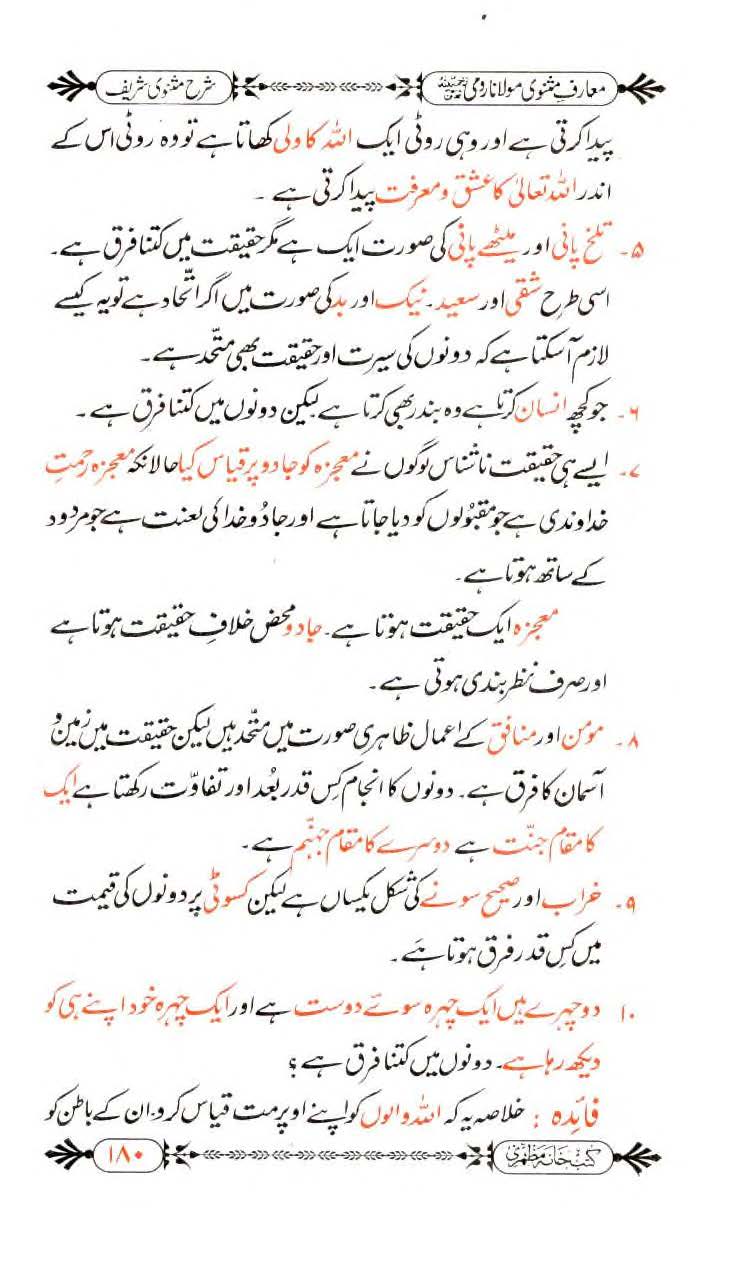 معارفِ مثنوی مولانا رومی
شرح مثنوی شریف
پیدا کرتی ہے اور وہی روٹی ایک اللہ کا ولی کھاتا ہے تو وہ روٹی اس کے
اندر اللہ تعالیٰ کا عشق و معرفت پیدا کرتی ہے ۔
۵۔ تلخ پانی اور میٹھے پانی کی صورت ایک ہے مگر حقیقت میں کتنا فرق ہے۔
اسی طرح شقی اور سعید۔ نیک اور بد کی صورت میں اگر اتّحاد ہے تو یہ کیسے
لازم آسکتا ہے کہ دونوں کی سیرت اور حقیقت بھی متّحد ہے۔
۶۔ جو کچھ انسان کرتا ہے وہ بندر بھی کرتا ہے لیکن دونوں میں کتنا فرق ہے۔
۷۔ ایسے ہی حقیقت ناشناس لوگوں نے معجزہ کو جادو پر قیاس کیا حالانکہ معجزہ رحمتِ
خداوندی ہے جو مقبُولوں کو دیا جاتا ہے اور جادُو خدا کی لعنت ہے جو مردود
کے ساتھ ہوتا ہے۔
معجزہ ایک حقیقت ہوتا ہے۔ جادو محض خلافِ حقیقت ہوتا ہے
اور صرف نظر بندی ہوتی ہے۔
۸۔ مومن اور منافق کے اعمال ظاہری صورت میں متّحد ہیں لیکن حقیقت میں زمین و
آسمان کا فرق ہے۔ دونوں کا انجام کس قدر بُعد اور تفاوّت رکھتا ہے ایک
کا مقام جنّت ہے دوسرے کا مقام جہنّم ہے۔
۹۔ خراب اور صحیح سونے کی شکل یکساں ہے لیکن کسوٹی پر دونوں کی قیمت
میں کس قدر فرق ہوتا ہے۔
۱۰ دو چہرے ہیں ایک چہرہ سوئے دوست ہے اور ایک چہرہ خود اپنے ہی کو
دیکھ رہا ہے۔ دونوں میں کتنا فرق ہے؟
فائدہ : خلاصہ یہ کہ اللہ والوں کو اپنے اوپر مت قیاس کرو۔ ان کے باطن کو
کتب خانہ مظہری
۱۸۰